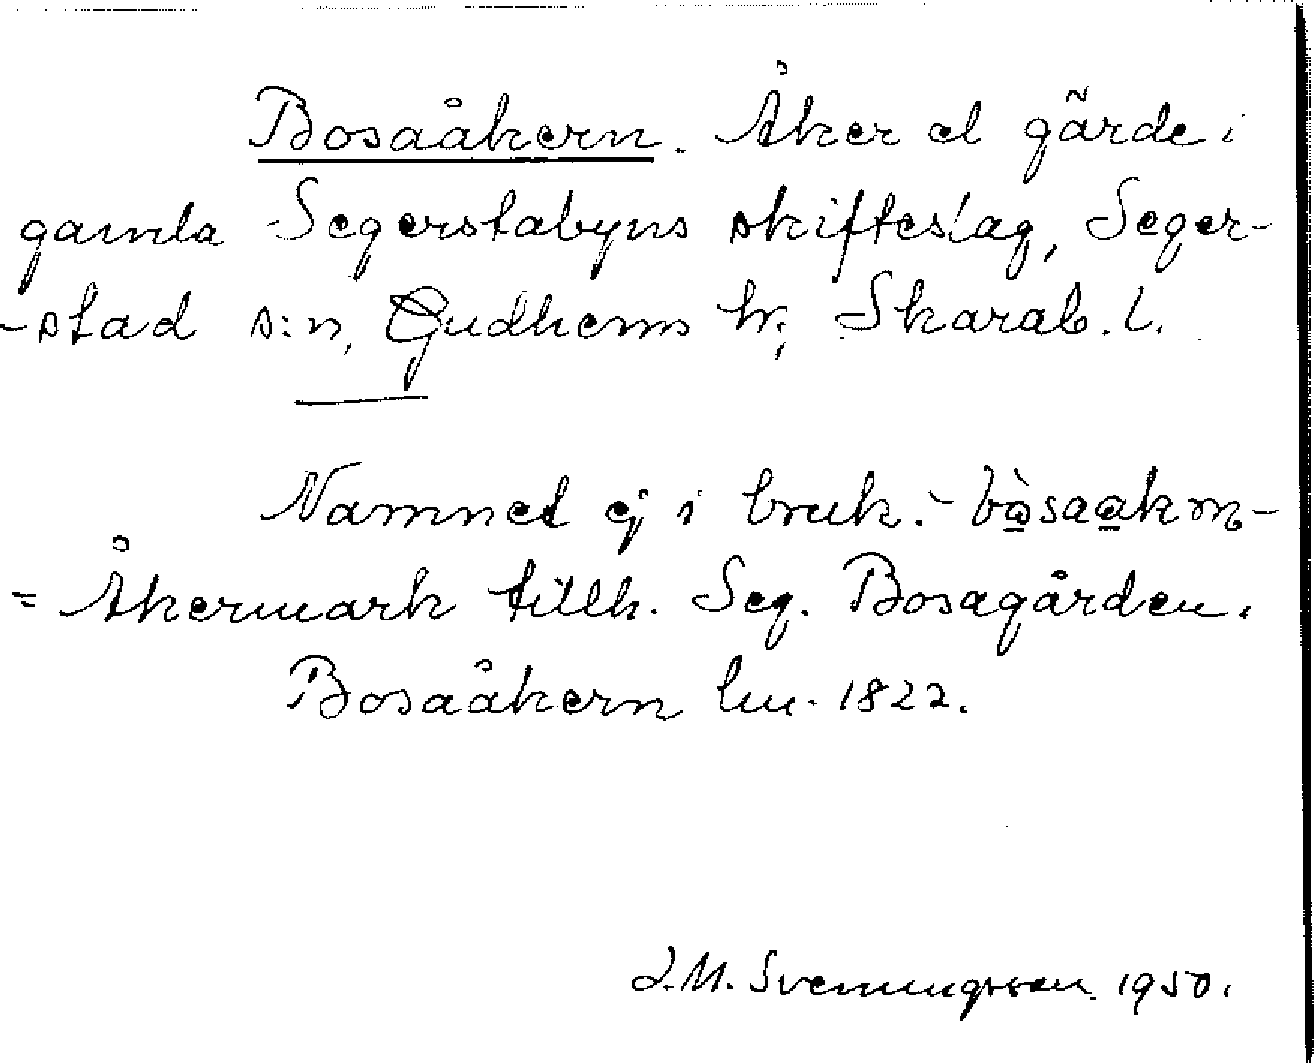 Bosaåkern. Åker el gärde i
gamla Segerstabyns skifteslag, Seger-
-stad s:n, Gudhems hr, Skarab. l.
Namnet ej i bruk. - bòsaakrn -
= Åkermark tillh. Seg. Bosagården.
Bosaåkern lm. 1822.
J.M. Svenningsson 1950.